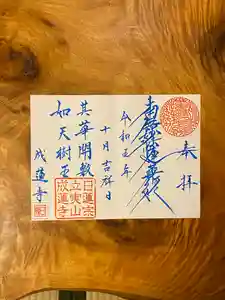 奉拝
南無妙法蓮華経
令和元年
十月吉祥日
其華開敷
如天樹王
成蓮寺
日蓮宗
立実山
成蓮寺